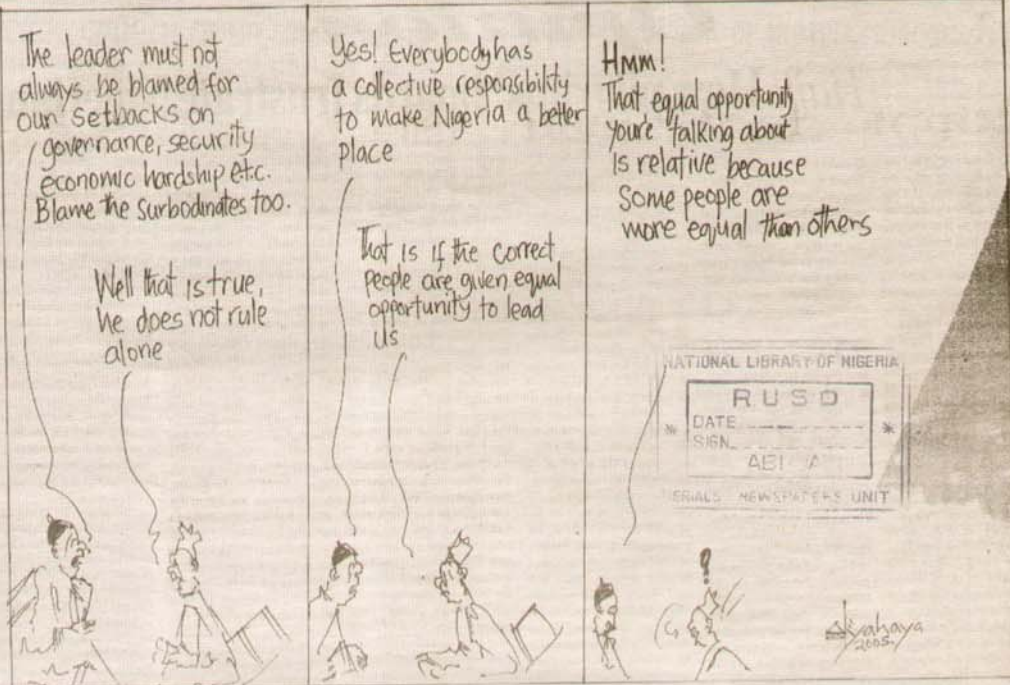 The leader must not
always be blamed for
our setbacks on
governance, security
economic hardship etc.
Blame the Surbodinates too.
Well that is true,
he does not rule
alone
Yes! Everybody has
a collective responsibility
to make Nigeria a better
place
That is if the correct
people are given equal
opportunity to lead
us
Hmm!
That equal opportunity
you're talking about
is relative because
some people are
more equal than others
!
NATIONAL LIBRARY OF NIGERIA
RUSD
* DATE *
SIGN
NEWSPAPERS UNIT
yahaya
2005.